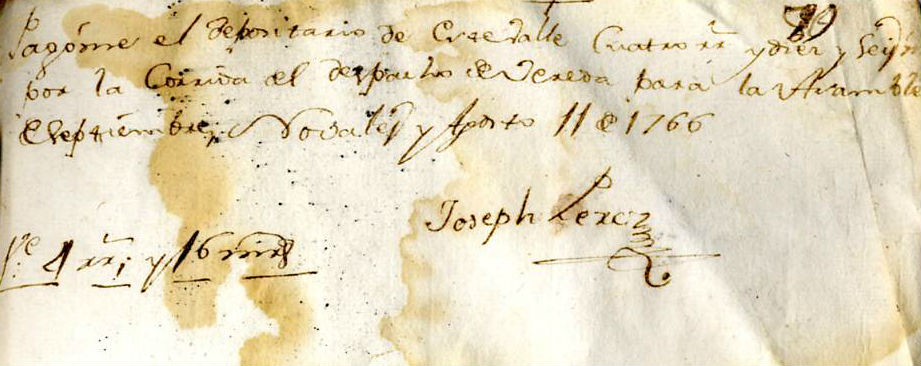 79
Pagóme el depositario de Este Valle Cuatro rrs y diez y Seis m
por la Corrida el despacho de Vereda para la Asamble
de Septiembre, Novales y Agosto 11 de 1766
Joseph Perez
Sn 4 rrs; y 16 mrs